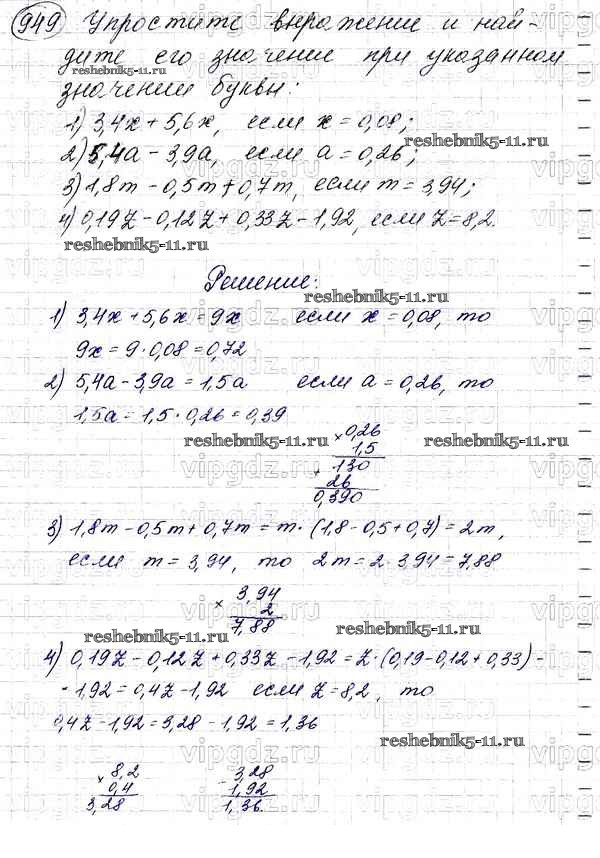 949 Упростите выражение и най-
дите его значение при указанном
reshebnik5-11.ru
значении буквы:
1) 3,4x + 5,6x, если x = 0,08;
reshebnik5-11.ru
2) 5,4a - 3,9a, если a = 0,26;
3) 1,8m - 0,5m + 0,7m, если m = 3,94;
4) 0,19z - 0,12z + 0,33z - 1,92, если z = 8,2.
reshebnik5-11.ru
vipgdz.ru
Решение:
reshebnik5-11.ru
1) 3,4x + 5,6x = 9x если x = 0,08, то
9x = 9 · 0,08 = 0,72
2) 5,4a - 3,9a = 1,5a если a = 0,26, то
1,5a = 1,5 · 0,26 = 0,39
reshebnik5-11.ru reshebnik5-11.ru
× 0,26
1,5
+ 130
26
0,390
3) 1,8m - 0,5m + 0,7m = m · (1,8 - 0,5 + 0,7) = 2m,
если m = 3,94, то 2m = 2 · 3,94 = 7,88
× 3,94
2
7,88
reshebnik5-11.ru reshebnik5-11.ru
4) 0,19z - 0,12z + 0,33z - 1,92 = z · (0,19 - 0,12 + 0,33) -
- 1,92 = 0,4z - 1,92 если z = 8,2, то
0,4z - 1,92 = 3,28 - 1,92 = 1,36
reshebnik5-11.ru
× 8,2 - 3,28
0,4 1,92
3,28 1,36